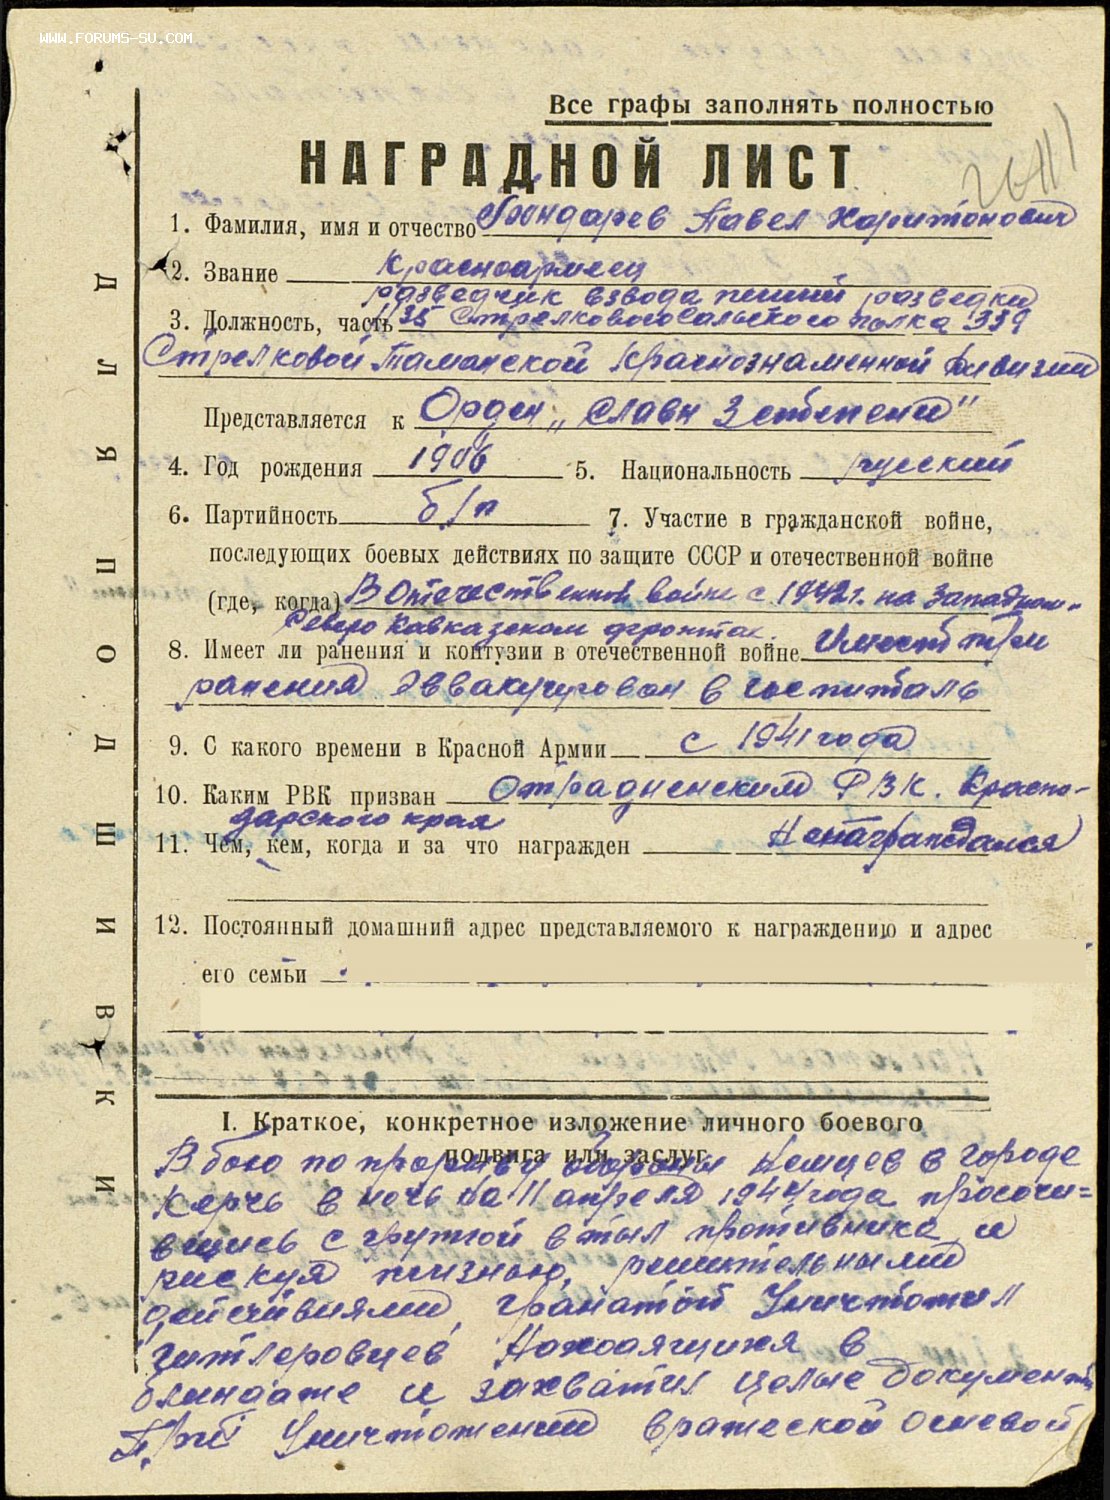 WWW.FORUMS-SU.COM
Все графы заполнять полностью
НАГРАДНОЙ ЛИСТ
1. Фамилия, имя и отчество Бондарев Павел Харитонович
2. Звание Красноармеец
разведчик взвода пешей разведки
3. Должность, часть 1135 Стрелкового Сальского полка 339
Стрелковой Таманской Краснознаменной Дивизии
Представляется к Орден „Славы 3 степени"
4. Год рождения 1906 5. Национальность русский
6. Партийность б/п 7. Участие в гражданской войне,
последующих боевых действиях по защите СССР и отечественной войне
(где, когда) В Отечественной войне с 1942 г. на Западном-
Северо Кавказском фронтах.
8. Имеет ли ранения и контузии в отечественной войне Имеет три
ранения Эввакуирован в госпиталь
9. С какого времени в Красной Армии с 1941 года
10. Каким РВК призван Отрадненским РВК. Красно-
дарского края
11. Чем, кем, когда и за что награжден Ненаграждался
12. Постоянный домашний адрес представляемого к награждению и адрес
его семьи
I. Краткое, конкретное изложение личного боевого
подвига или заслуг
В бою по прорыву обороны Немцев в городе
Керчь в ночь на 11 апреля 1944 года просочи=
вшись с группой в тыл противника и
рискуя жизнью, решительными
действиями, гранатой Уничтожил
гитлеровцев Находящихя в
блиндаже и захватил целые документы
При Уничтожении вражеской огневой
ДЛЯ ПОДШИВКИ